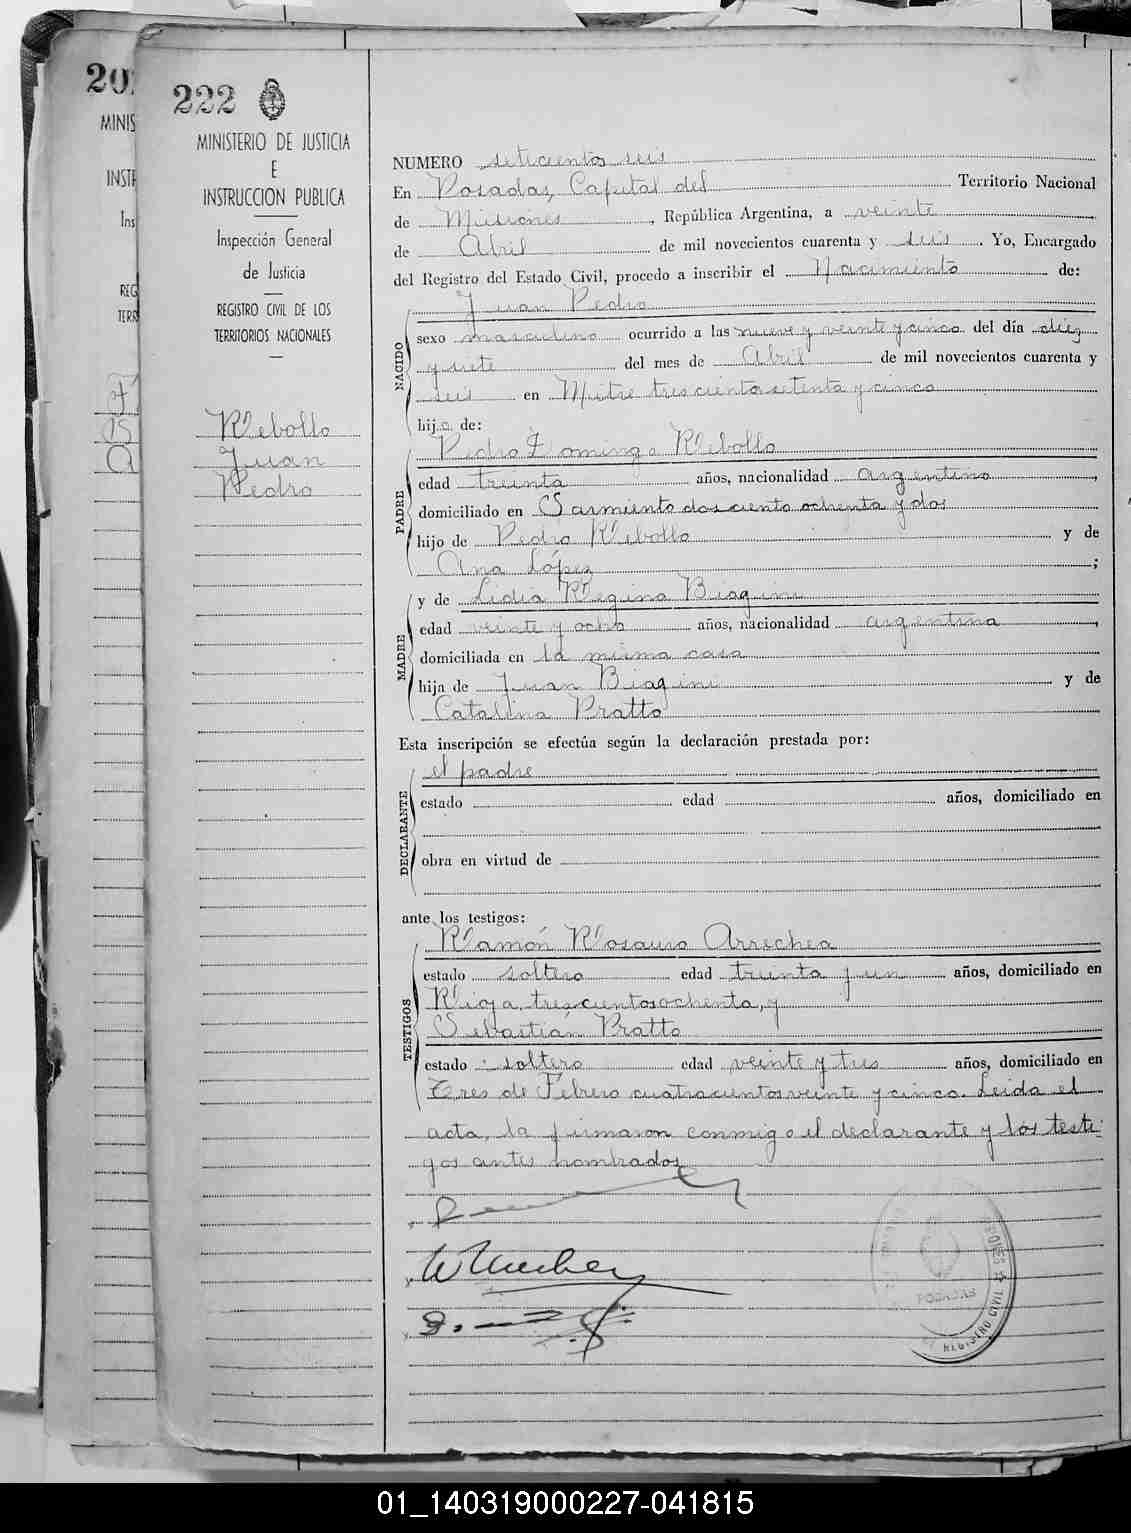 20
MINIS
INSTR
Ins
REG
TERR
222
MINISTERIO DE JUSTICIA
E
INSTRUCCION PUBLICA
Inspección General
de Justicia
REGISTRO CIVIL DE LOS
TERRITORIOS NACIONALES
Rebollo
Juan
Pedro
NUMERO setecientos seis
En Posadas, Capital del Territorio Nacional
de Misiones, República Argentina, a veinte
de Abril de mil novecientos cuarenta y seis. Yo, Encargado
del Registro del Estado Civil, procedo a inscribir el Nacimiento de:
NACIDO
Juan Pedro
sexo masculino ocurrido a las nueve y veinte y cinco del día diez
y siete del mes de Abril de mil novecientos cuarenta y
seis en Mitre trescientosetenta y cinco
hijo de:
PADRE
Pedro Domingo Rebollo
edad treinta años, nacionalidad argentino,
domiciliado en Sarmiento doscientoochenta y dos
hijo de Pedro Rebollo y de
Ana López;
MADRE
y de Lidia Regina Biagini
edad veinte y ocho años, nacionalidad argentina,
domiciliada en la misma casa
hija de Juan Biagini y de
Catalina Pratto
Esta inscripción se efectúa según la declaración prestada por:
DECLARANTE
el padre
estado edad años, domiciliado en
obra en virtud de
ante los testigos:
TESTIGOS
Ramón Rosauro Arrechea
estado soltero edad treinta y un años, domiciliado en
Rioja, trescientosochenta, y
Sebastián Pratto
estado soltero edad veinte y tres años, domiciliado en
Tres de Febrero cuatrocientosveinte y cinco. Leida el
acta, la firmaron conmigo el declarante y los testi-
gos antes nombrados
POSADAS
REGISTRO CIVIL
01_140319000227-041815